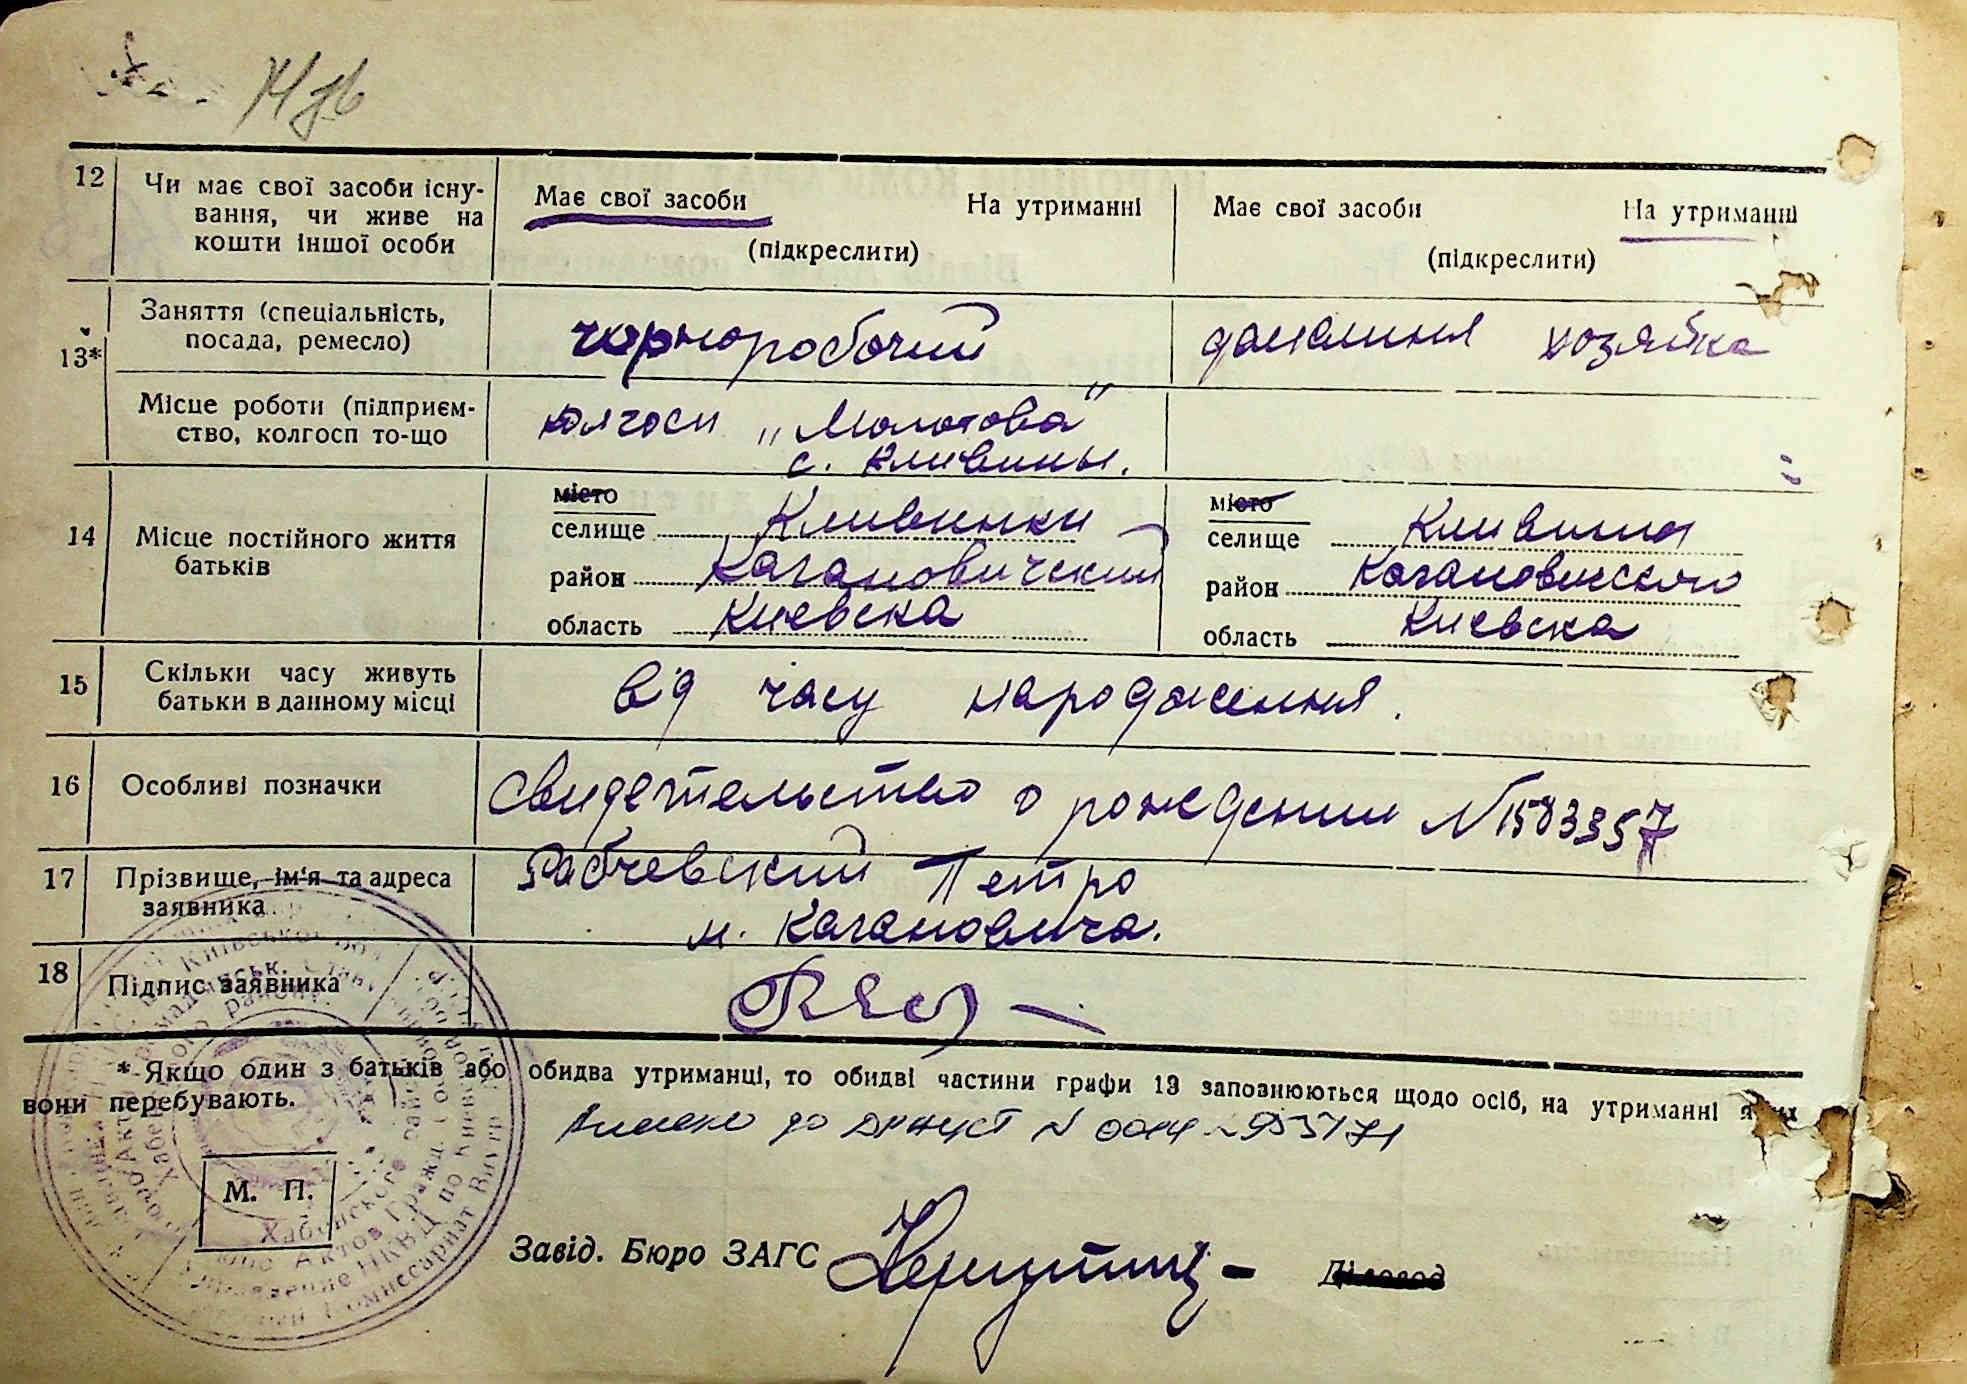 12 Чи має свої засоби існу-
вання, чи живе на
кошти іншої особи
Має свої засоби На утриманні
(підкреслити)
Має свої засоби На утриманні
(підкреслити)
13* Заняття (спеціальність,
посада, ремесло)
чорноробочий
домашня хозяйка
Місце роботи (підприєм-
ство, колгосп то-що
колгосп „Молотова"
с. Кливины.
14 Місце постійного життя
батьків
місто
селище Кливинки
район Кагановичский
область Киевска
місто
селище Кливина
район Кагановичского
область Киевска
15 Скільки часу живуть
батьки в данному місці
від часу народження.
16 Особливі позначки
Свидетельство о рождении N 1583357
17 Прізвище, ім'я та адреса
заявника
Рабчевский Петро
м. Кагановича.
18 Підпис заявника
* Якщо один з батьків або обидва утриманці, то обидві частини графи 13 заповнюються щодо осіб, на утриманні яких
вони перебувають.
до N
М. П.
Завід. Бюро ЗАГС
Діловод